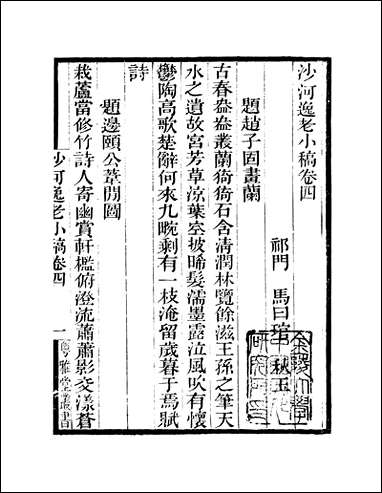 沙河逸老小稿卷四
祁門 馬曰琯 秋玉
題趙子固畫蘭
古春盎盎叢蘭猗猗石含清潤林覽餘滋王孫之筆天
水之遺故宮芳草涼葉空披晞髮濡墨露泣風吹有懷
鬱陶高歌楚辭何來九畹剩有一枝淹留歲暮于焉賦
詩
題邊頤公葦閒圖
栽蘆當修竹詩人寄幽賞軒檻俯澄流蕭蕭影交漾蒼
沙河逸老小稿卷四 一 粵雅堂叢書